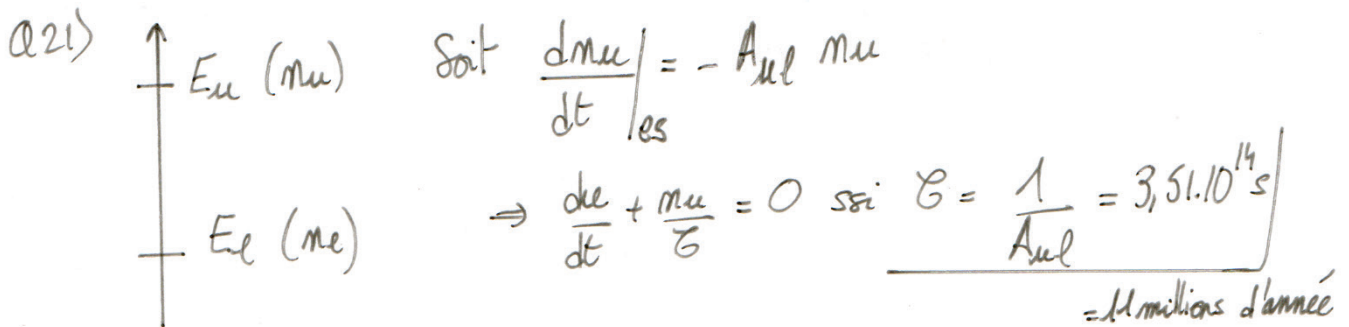 Q21) E_u (n_u) Soit dn_u/dt|_es = - A_ul n_u
E_l (n_l) ⇒ du/dt + n_u/τ = 0 ssi τ = 1/A_ul = 3,51.10^14 s
= 11 millions d'année